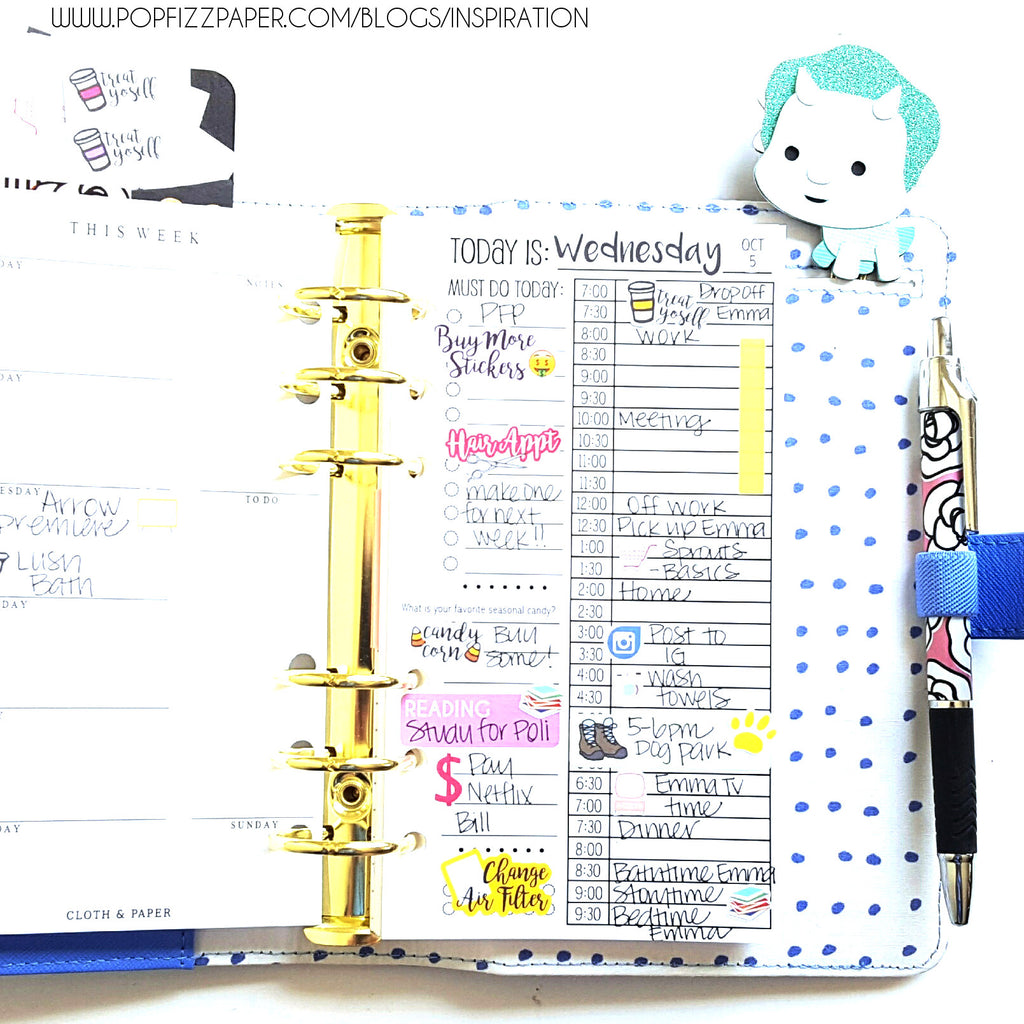 WWW.POPFIZZPAPER.COM/BLOGS/INSPIRATION
treat
yoself
treat
yoself
THIS WEEK
NOTES
DAY
DAY
TO DO
Arrow
premiere
Lush
Bath
DAY
DAY
DAY
SUNDAY
CLOTH & PAPER
TODAY IS: Wednesday OCT
5
MUST DO TODAY:
PFP
Buy More
Stickers
Hair Appt
make one
for next
week!!
What is your favorite seasonal candy?
candy corn Buy
some!
READING
Study for Poli
$ Pay
Netflix
Bill
Change
Air Filter
7:00 treat Drop off
7:30 yoself Emma
8:00 work
8:30
9:00
9:30
10:00 Meeting
10:30
11:00
11:30
12:00 Off work
12:30 Pick up Emma
1:00 - Sprouts
1:30 - Basics
2:00 Home
2:30
3:00 Post to
3:30 IG
4:00 wash
4:30 towels
5-6pm
Dog park
6:30 Emma TV
7:00 time
7:30 Dinner
8:00
8:30 Bathtime Emma
9:00 Storytime
9:30 Bedtime
Emma